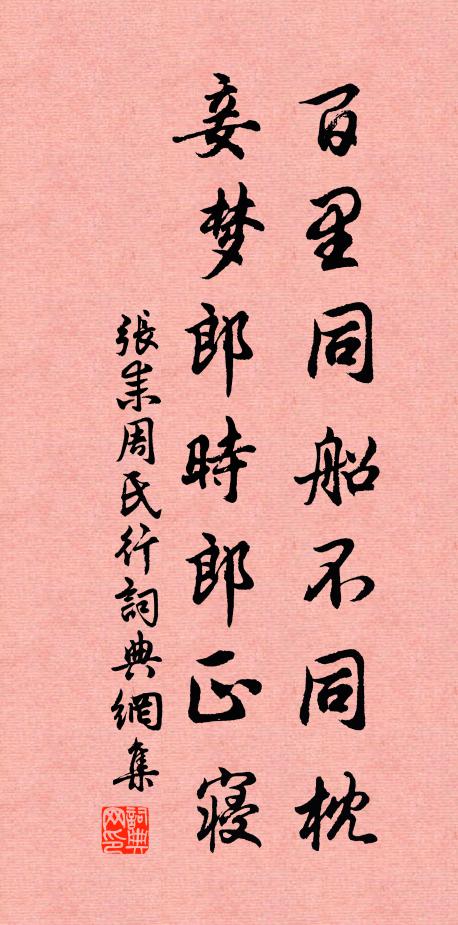 百里同船不同枕
妾梦郎時郎正寝
張耒周民行詞典網集
詞典网印